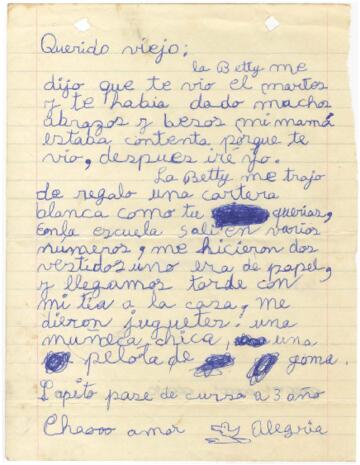 Querido viejo;
la Betty me
dijo que te vio el martes
y te habia dado muchos
abrazos y besos, mi mamá
estaba contenta porque te
vio, despues iré yo.
La Betty me trajo
de regalo una cartera
blanca como tu querias,
En la escuela sali en varios
números, me hicieron dos
vestidos uno era de papel,
y llegamos tarde con
mi tia a la casa, me
dieron juguetes: una
muñeca chica, una
pelota de goma.
Papito pase de curso a 3 año
Chaooo amor Alegria